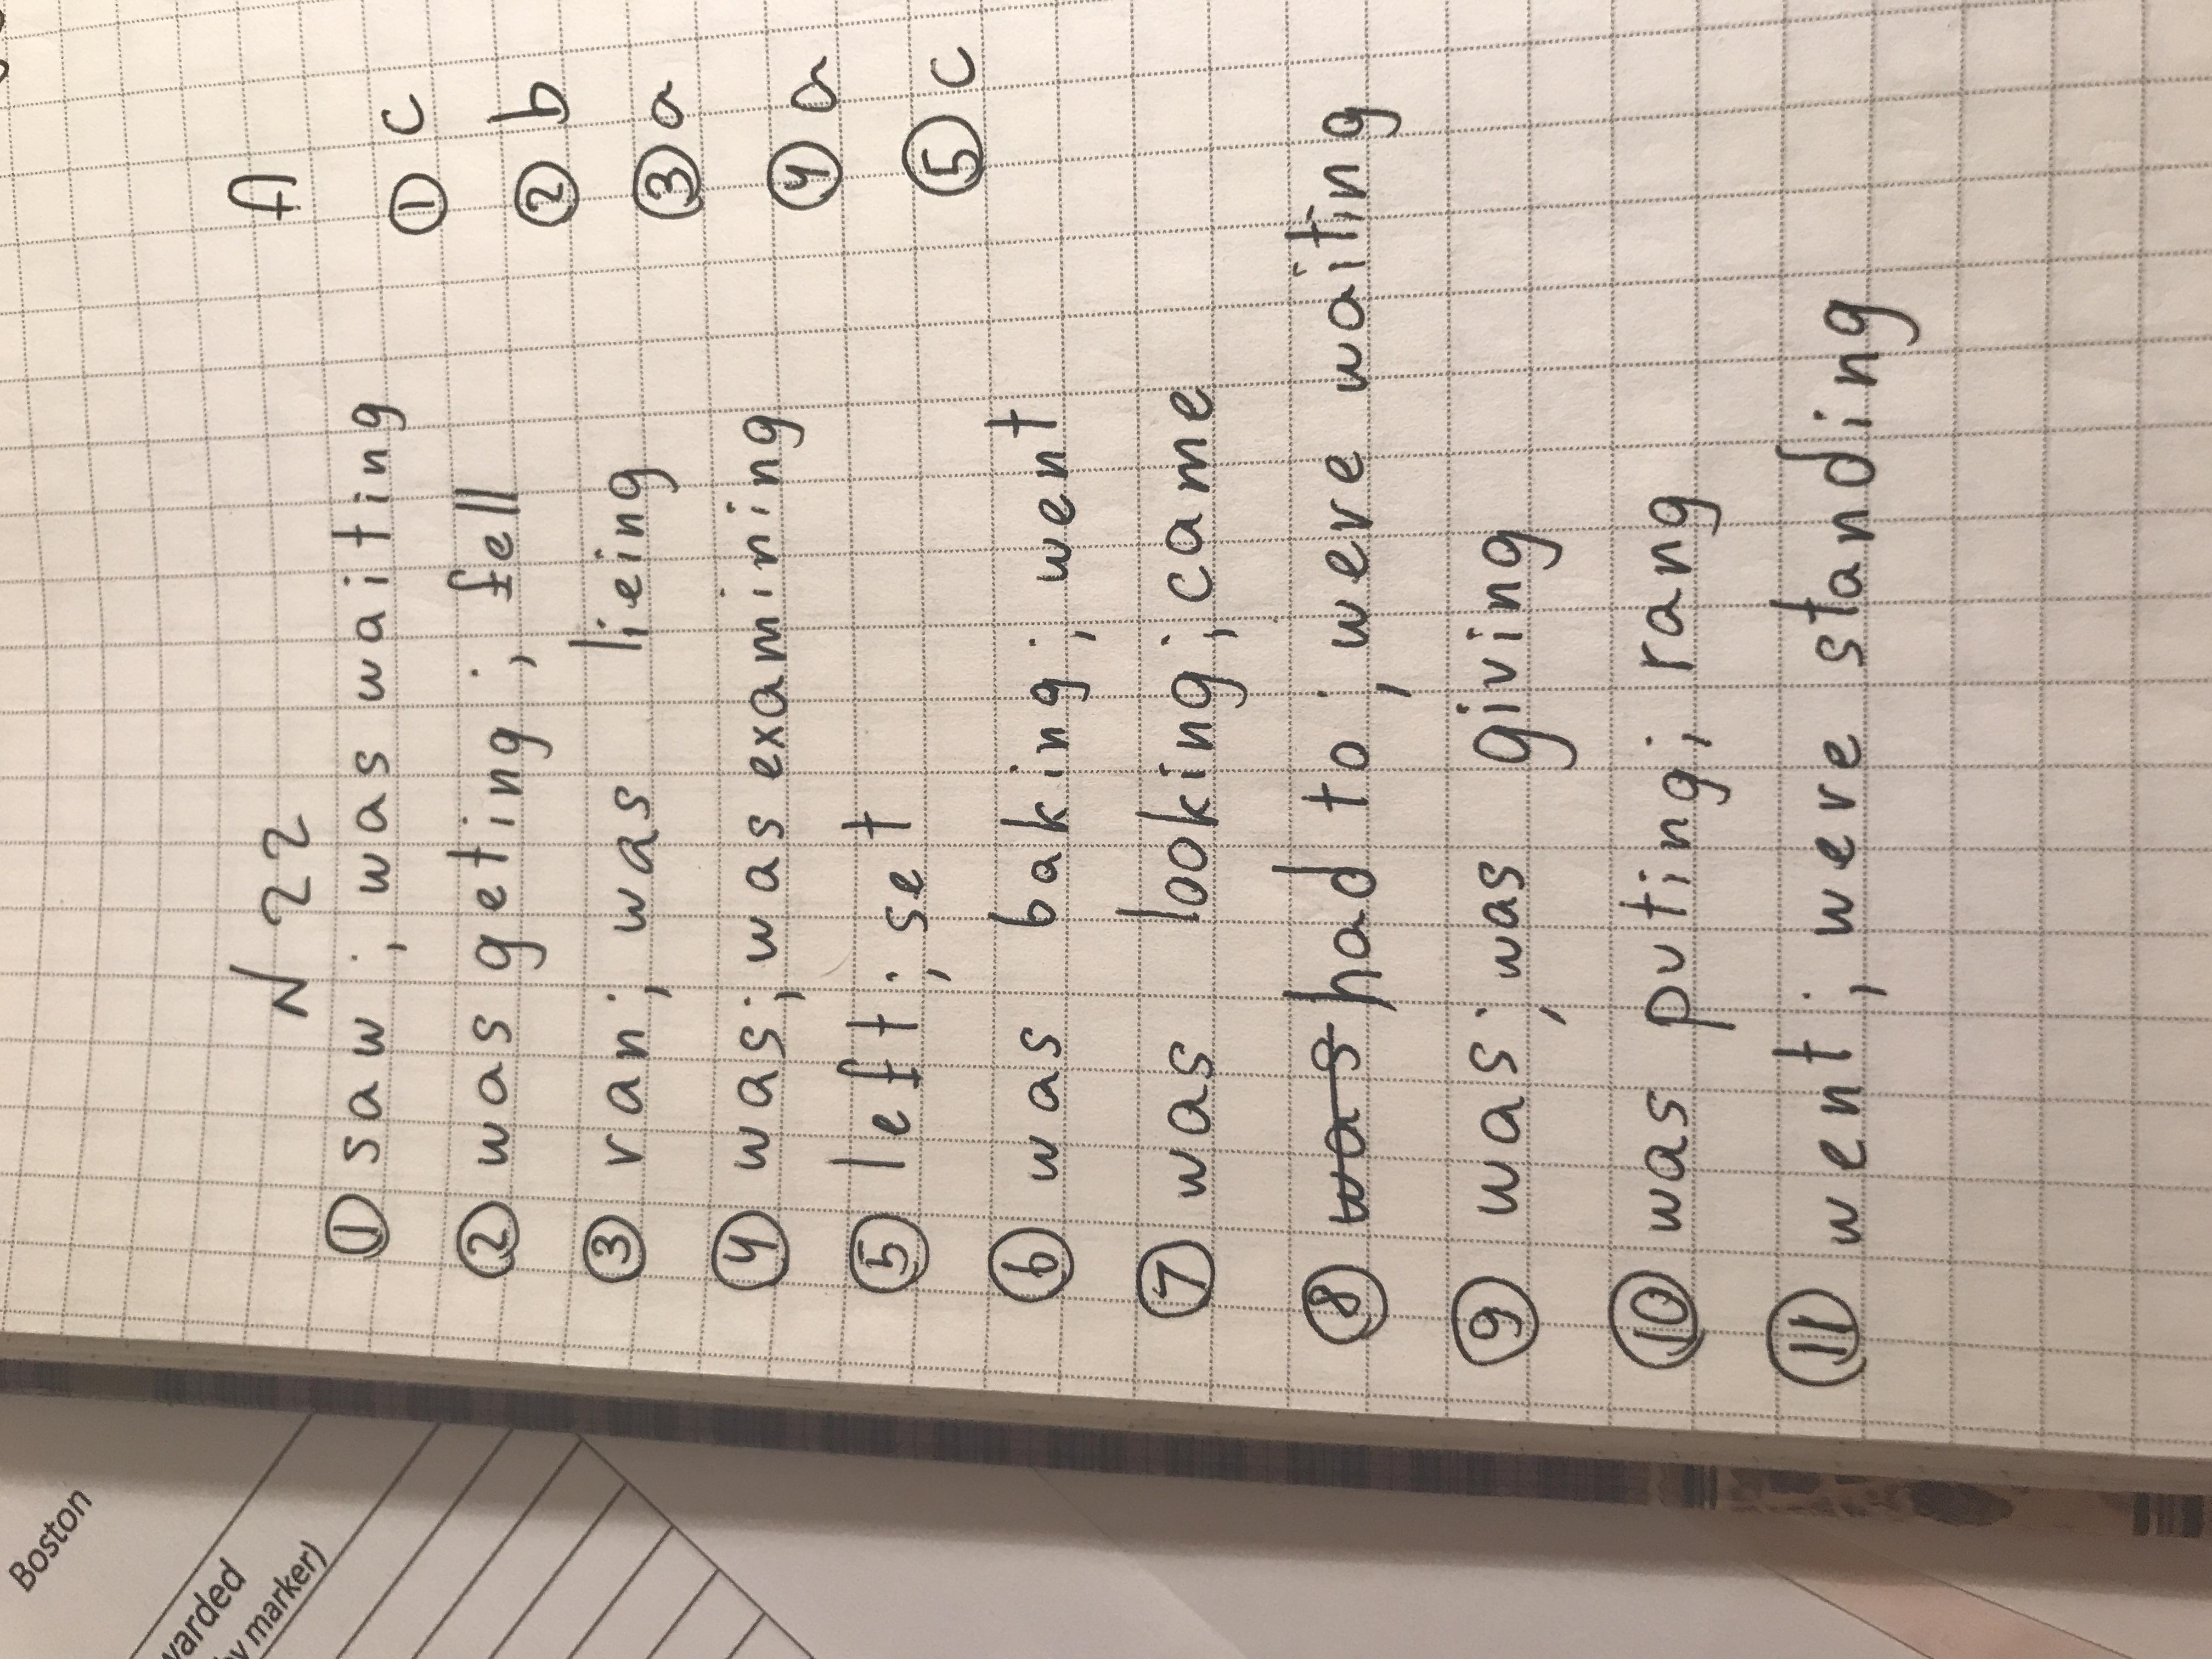 N 22
① saw ; was waiting
② was geting ; fell
③ ran ; was lieing
④ was ; was examining
⑤ left ; set
⑥ was baking ; went
⑦ was looking ; came
⑧ was had to ; were waiting
⑨ was ; was giving
⑩ was puting ; rang
⑪ went ; were standing
A
① c
② b
③ a
④ a
⑤ c
Boston
warded
by marker)